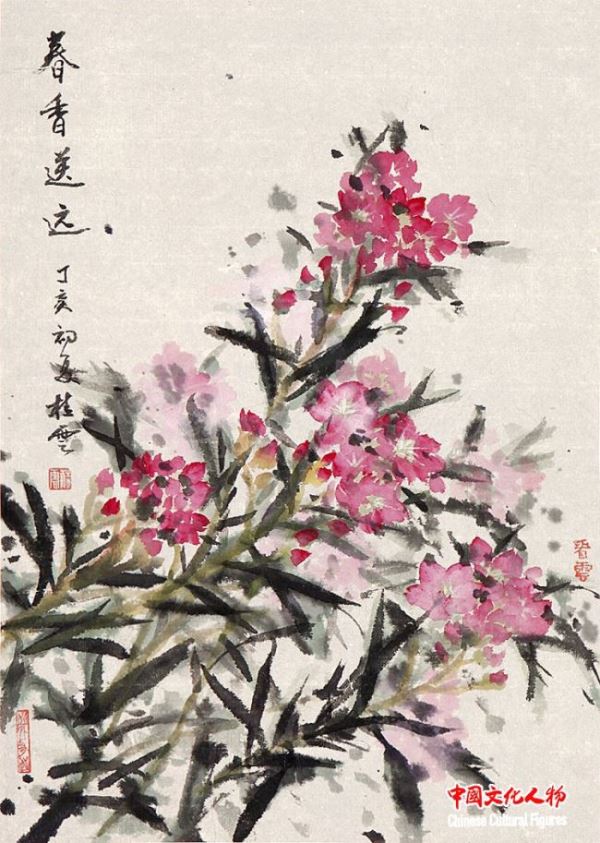 春香送远
丁亥初夏 桂云
碧雲
中国文化人物
Chinese Cultural Figures